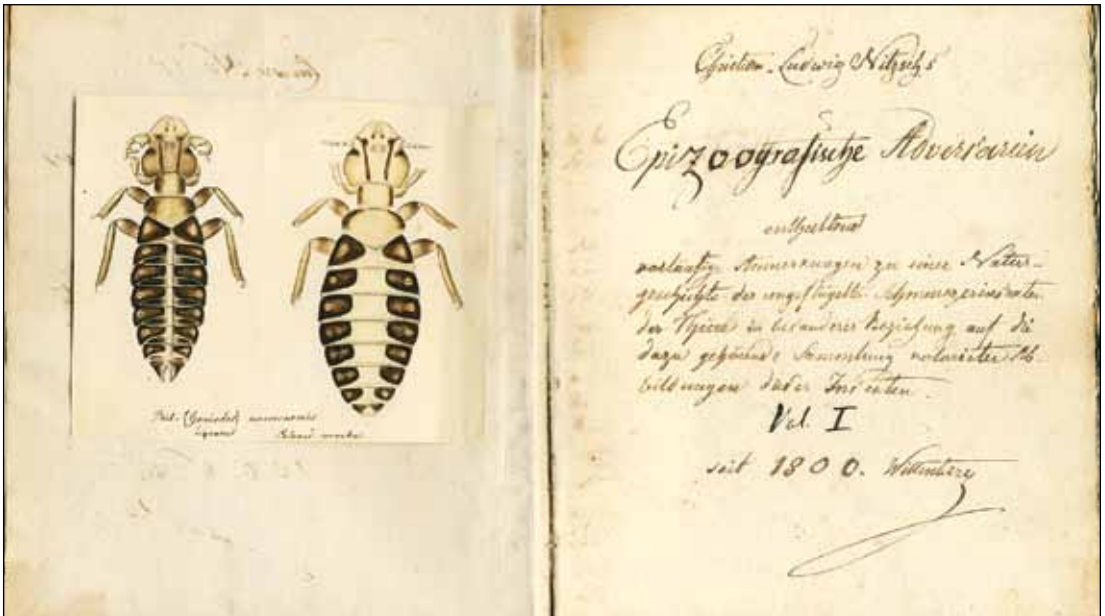 Phil. (Goniodes)
Christian Ludwig Nitzsch's
Epizoografische Adversarien
enthaltend
vorläufige Anmerkungen zu einer Natur-
geschichte der ungeflügelten Schmarozerinsekten
der Thiere in besonderer Beziehung auf die
dazu gehörende Sammlung colorirter Ab-
bildungen dieser Insekten.
Vol. I
seit 1800. Wittenberg